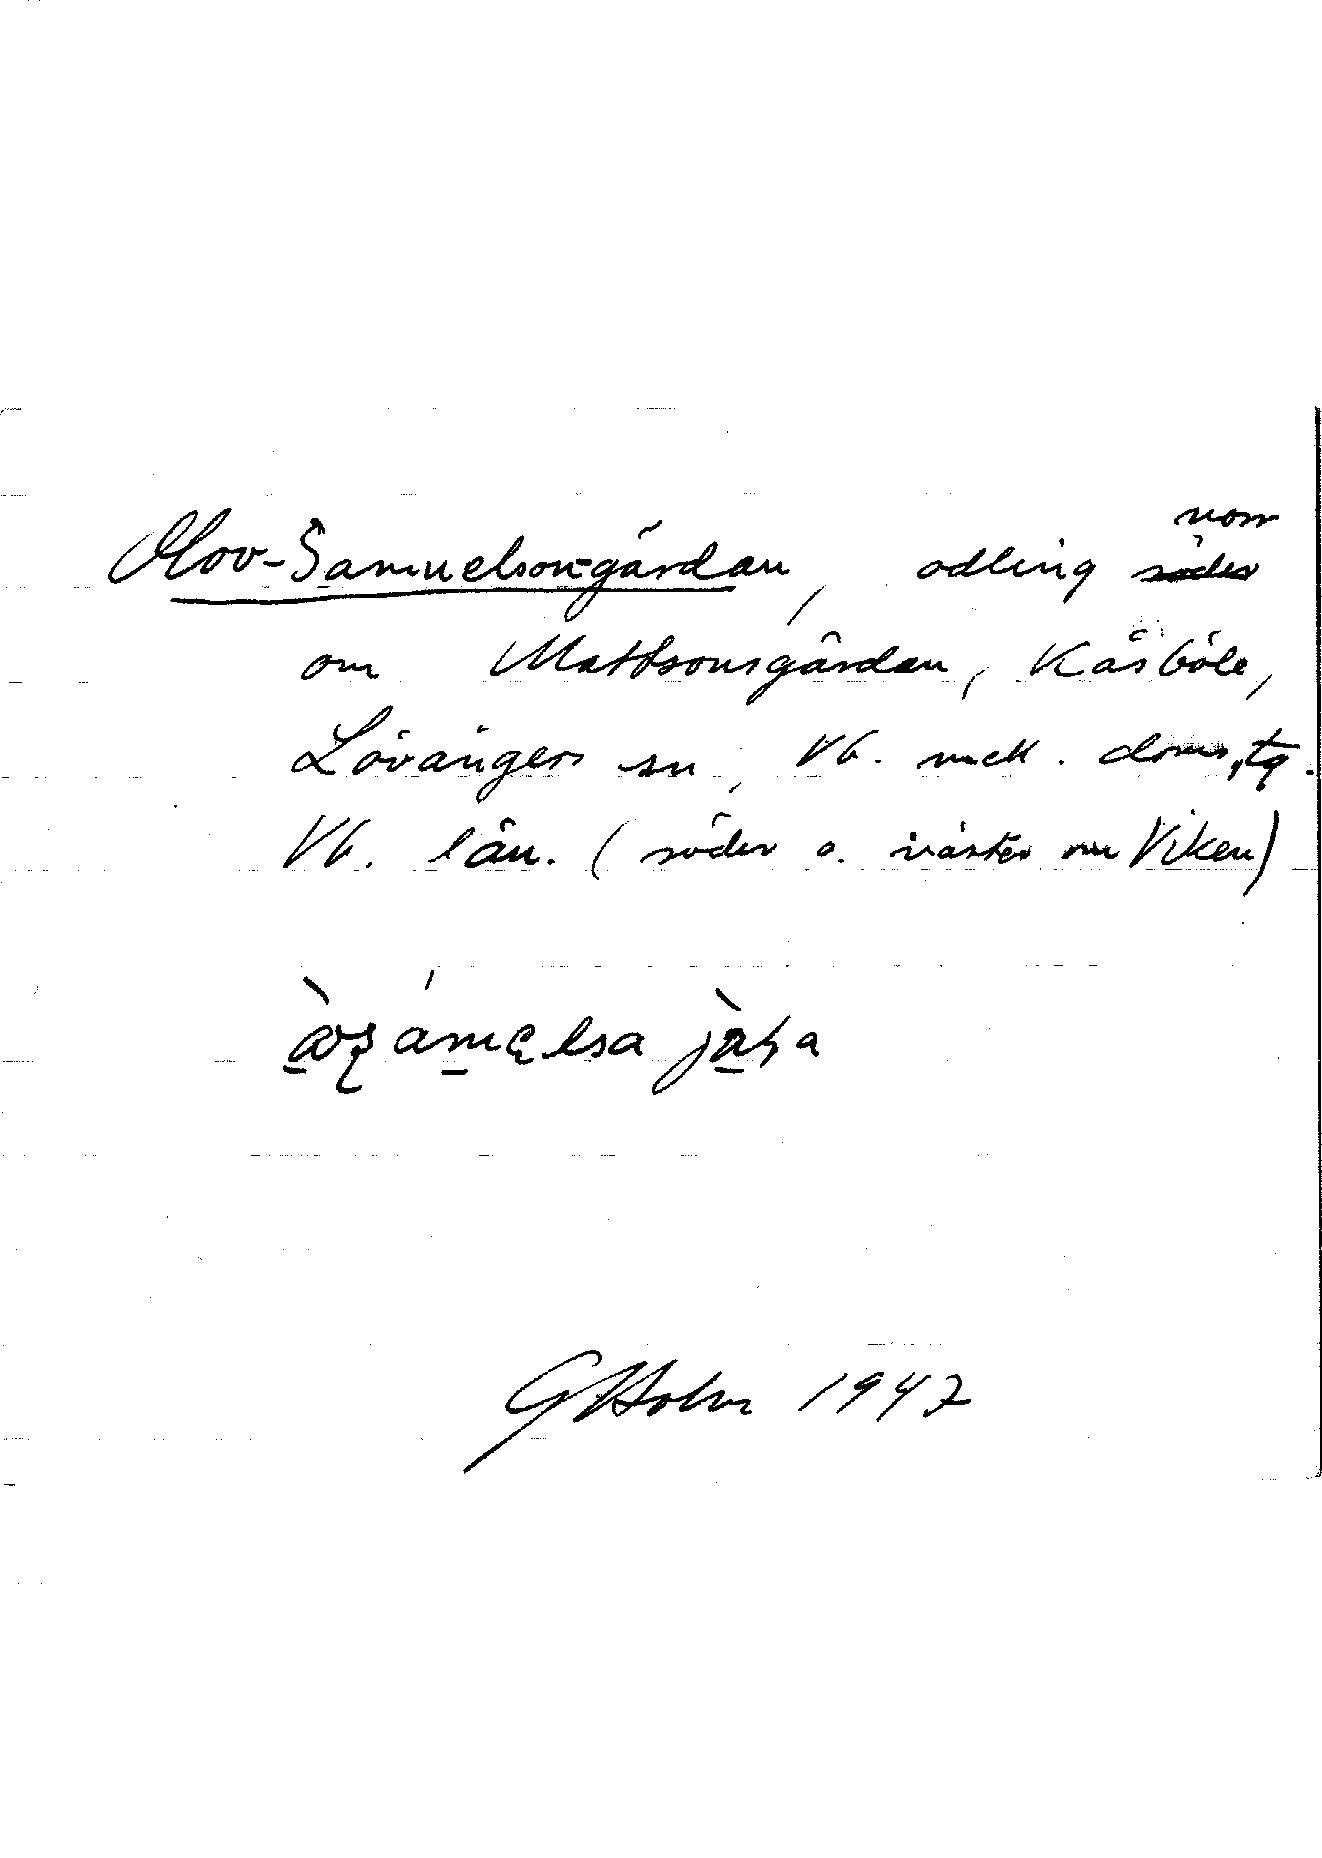 Olov-Samuelson-gärdan, odling norr
om Mattsonsgärdan, Kåsböle,
Lövångers sn, Vb. mell. doms,tg.
Vb. län. (söder o. väster om Viken)
GHolm 1947